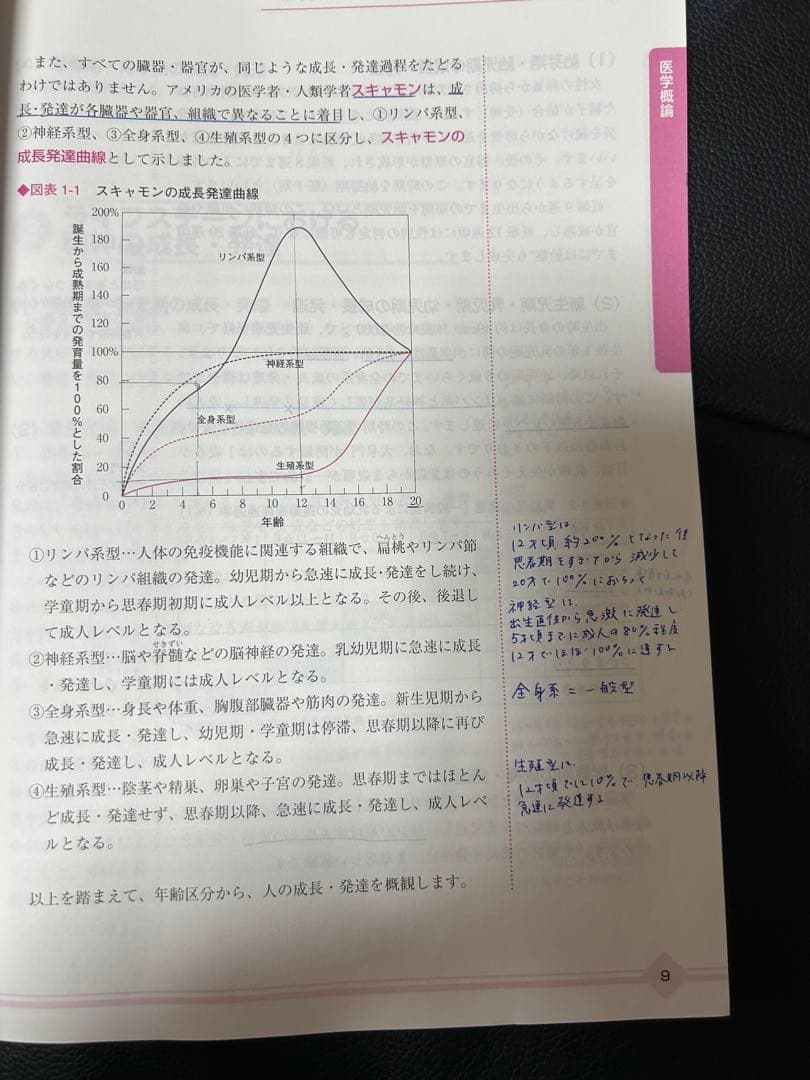 医学概論
また、すべての臓器・器官が、同じような成長・発達過程をたどる
わけではありません。アメリカの医学者・人類学者スキャモンは、成
長・発達が各臓器や器官、組織で異なることに着目し、①リンパ系型、
②神経系型、③全身系型、④生殖系型の4つに区分し、スキャモンの
成長発達曲線として示しました。
◆図表 1-1 スキャモンの成長発達曲線
誕生から成熟期までの発育量を100%とした割合
200%
180
160
140
120
100%
80
60
40
20
0
リンパ系型
神経系型
全身系型
生殖系型
0 2 4 6 8 10 12 14 16 18 20
年齢
①リンパ系型…人体の免疫機能に関連する組織で、扁桃やリンパ節
へんとう
などのリンパ組織の発達。幼児期から急速に成長・発達をし続け、
学童期から思春期初期に成人レベル以上となる。その後、後退し
て成人レベルとなる。
せきずい
②神経系型…脳や脊髄などの脳神経の発達。乳幼児期に急速に成長
・発達し、学童期には成人レベルとなる。
③全身系型…身長や体重、胸腹部臓器や筋肉の発達。新生児期から
急速に成長・発達し、幼児期・学童期は停滞、思春期以降に再び
成長・発達し、成人レベルとなる。
④生殖系型…陰茎や精巣、卵巣や子宮の発達。思春期まではほとん
ど成長・発達せず、思春期以降、急速に成長・発達し、成人レベ
ルとなる。
以上を踏まえて、年齢区分から、人の成長・発達を概観します。
リンパ型は
12才頃 約200% となった後
思春期をすぎてから 減少して
20才で100%におちつく
神経型は
出生直後から急激に発達し
5才頃までに成人の80%程度
12才でほぼ100%に達する
全身系=一般型
生殖型は
12才頃では10%で 思春期以降
急速に発達する
9